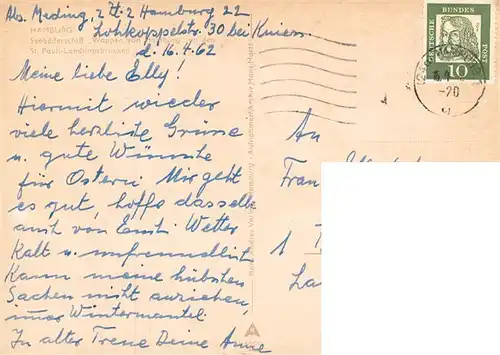 Abs. Meding, z Zt: 2 Hamburg 22
Lohkoppelstr. 30 bei Kniem
d. 16.4.62
HAMBURG
Seebäderschiff „Wappen von Hamburg" an den
St. Pauli-Landungsbrücken
Meine liebe Elly!
Hiermit wieder
viele herzliche Grüsse
u. gute Wünsche
für Ostern. Mir geht
es gut, hoffe dasselbe
auch von Euch. Wetter
kalt u. unfreundlich
Kann meine hübschen
Sachen nicht anziehen,
immer Wintermantel.
In alter Treue Deine Anne
DEUTSCHE BUNDESPOST
10
-20
An
Frau
1